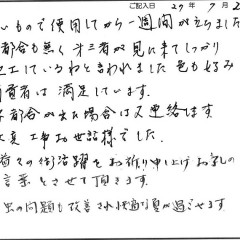 ご記入日 29年 9月2
いもので使用してから一週間が立ちました
都合も無く 才三者が見に来てしっかり
工しているわと言われました 色も好み
者は 満足しています。
都合が出た場合は又連絡します
工事お世話様でした。
々の御活躍をお祈り申し上げお礼の
言葉とさせて頂きます。
虫の問題も改善され快適な夏が過ごせます